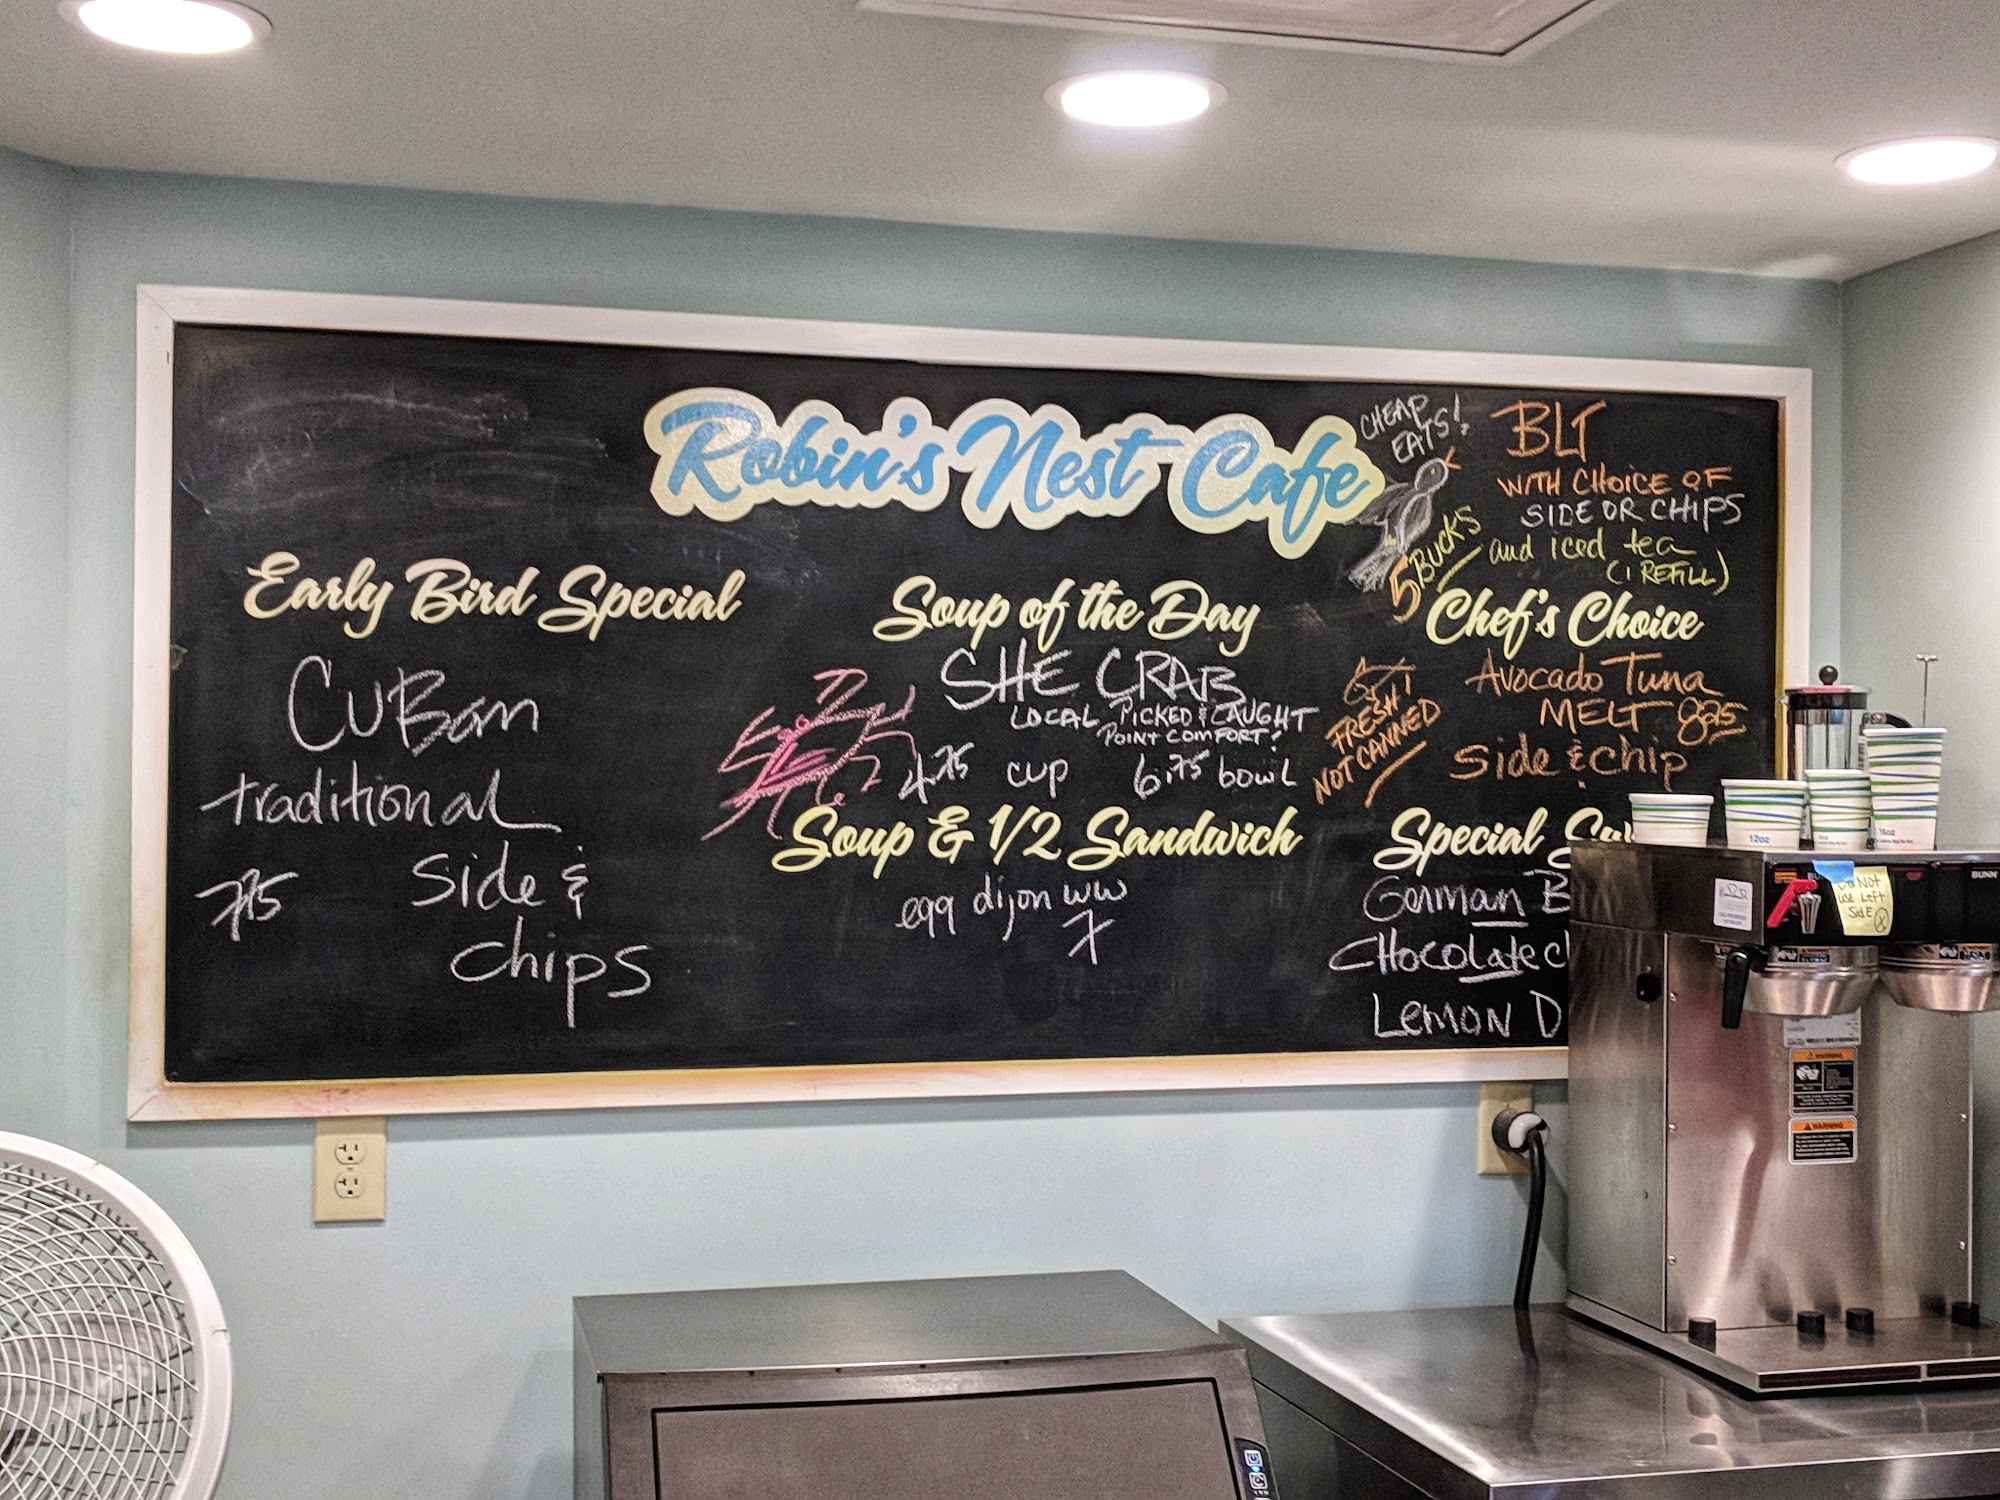 Robin's Nest Cafe
CHEAP
EATS!
BLT
WITH CHOICE OF
SIDE OR CHIPS
and iced tea
(1 REFILL)
5 BUCKS
Early Bird Special
CUBan
traditional
Side &
chips
7.75
Soup of the Day
SHE CRAB
LOCAL PICKED & CAUGHT
POINT COMFORT!
4.75 cup 6.75 bowl
Soup & 1/2 Sandwich
egg dijon ww
7
Chef's Choice
Avocado Tuna
MELT 8.25
side & chip
FRESH
NOT CANNED
Special
German
CHOCOLATE
LEMON
12oz
16oz
BUNN
Do Not
use Left
SidE
WARNING
WARNING